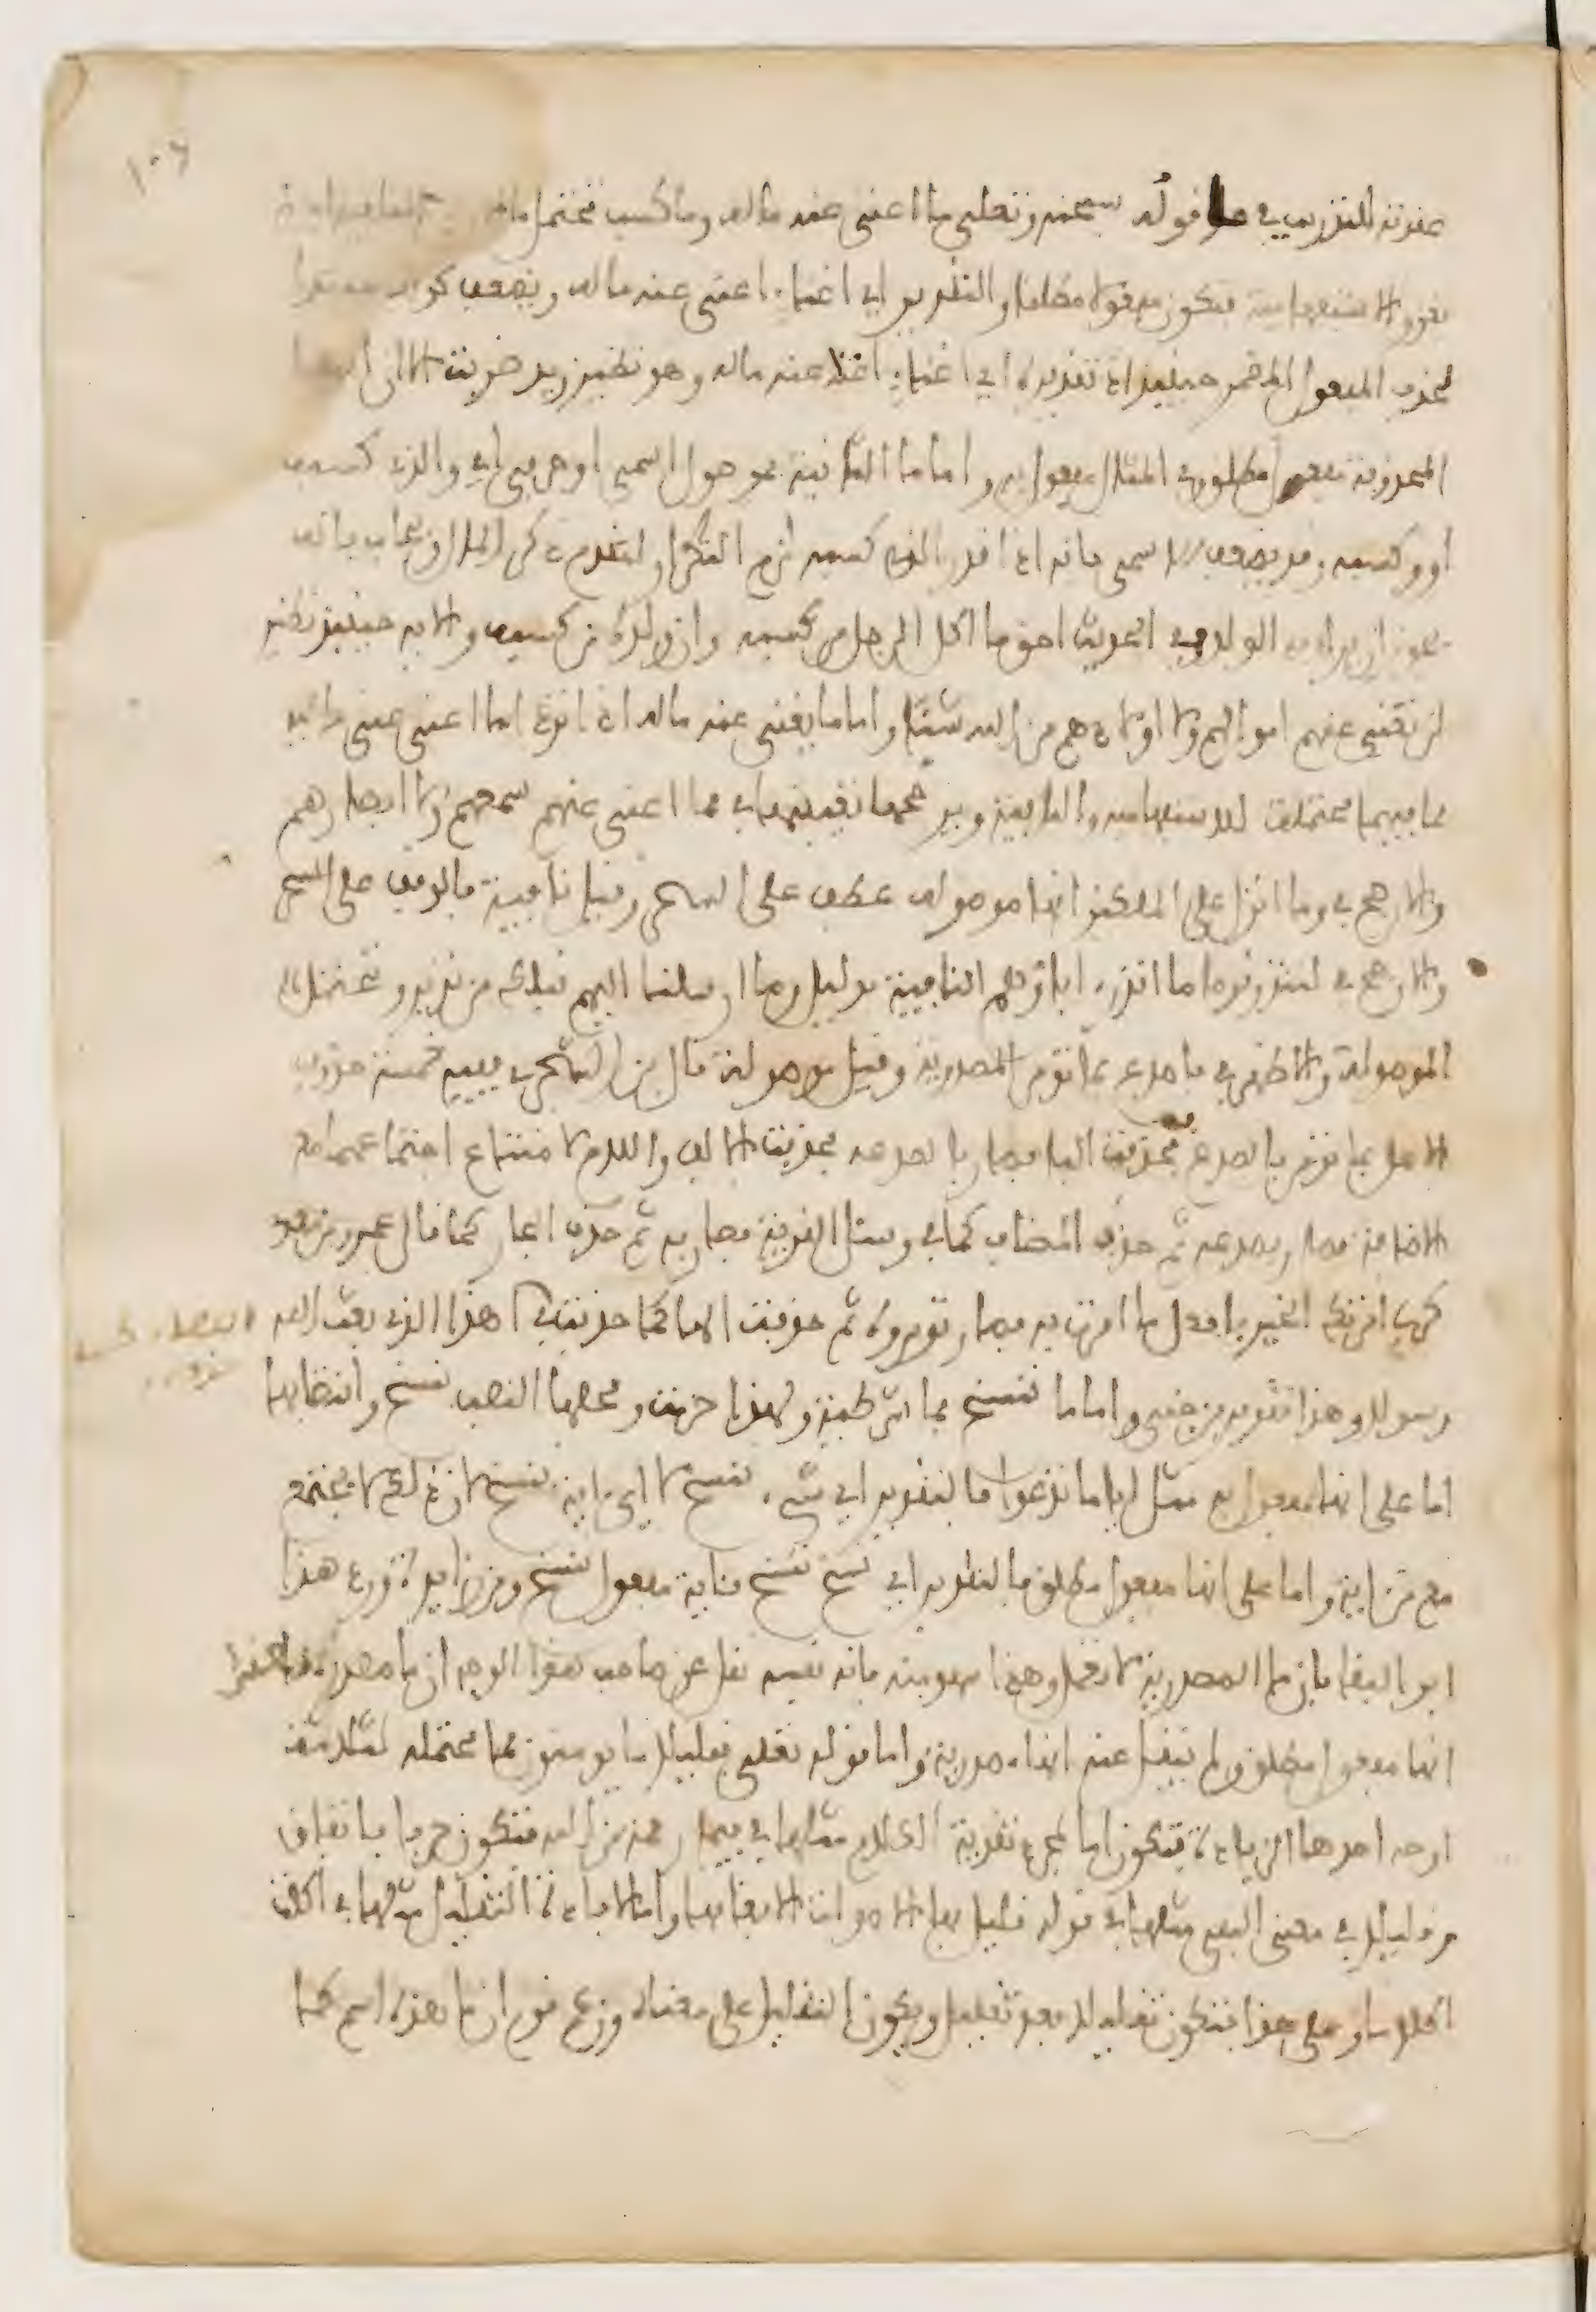 عقدته للتدريب في ما قوله سبحنه وتعلى ما اغنى عنه ماله وما كسب تحتمل ما النافية
والاستفهامية فتكون مفعولا مطلقا والتقدير اي اغناء اغنى عنه ماله ويضعف كونه مبتدا
بحذف المفعول المضمر حينئذ اذ تقديره اي اغناء اغناه عنه ماله وهو نظير زيد ضربت الا ان الها
المحذوفة مفعول مطلق وفي المثال مفعول به واما ما الثانية فموصول اسمي او حرفي اي والذي كسبه
او وكسبه وقد يضعف الاسمي بانه اذا قدر والذي كسبه لزم التكرار لتقدم ذكر المال ويجاب بانه
يجوز ان يراد به الولد ففي الحديث احق ما اكل الرجل من كسبه وان ولده من كسبه والاية حينئذ نظير
لن تغني عنهم اموالهم ولا اولادهم من الله شيئا واما ما يغني عنه ماله اذا تردى ما اغنى عني ماليه
فما فيهما محتملة للاستفهامية والنافية ويرجحها تعينها في فما اغنى عنهم سمعهم ولا ابصارهم
والارجح في وما انزل على الملكين انها موصولة عطف على السحر وقيل نافية فالوقف على السحر
والارجح في لتنذر قوما ما انذر اباؤهم النافية بدليل وما ارسلنا اليهم قبلك من نذير وتحتمل
الموصولة والاظهر في فاصدع بما تؤمر المصدرية وقيل موصولة قال بن الشجري ففيه خمسة حذوف
الاصل بما تؤمر بالصدع به فحذفت البا فصار بالصدعه فحذفت الالف واللام لامتناع اجتماعهما مع
الاضافة فصار بصدعه ثم حذف المضاف كما في وسئل القرية فصار به ثم حذف الجار كما قال عمرو بن معد
كرب امرتك الخير فافعل ما امرت به فصار تومره ثم حذفت الها كما حذفت في اهذا الذي بعث الله
رسولا وهذا تقرير بن جني واما ما ننسخ فما شرطية ولهذا جزمت ومحلها النصب بننسخ وانتصابها
اما على انها مفعول به مثل ايا ما تدعوا فالتقدير اي شيء ننسخ لا اي اية ننسخ لان ذلك لا يجتمع
مع من اية واما على انها مفعول مطلق فالتقدير اي نسخ ننسخ فاية مفعول ننسخ ومن زايدة ورد هذا
ابو البقا بان ما المصدرية لا تعمل وهذا سهو منه فانه نفسه نقل عن صاحب هذا الوجه ان ما مصدر بمعنى
انها مفعول مطلق ولم ينقل عنه انها مصدرية واما قوله تعلى فقليلا ما يومنون فما محتملة لثلاثة
اوجه احدها الزيادة فتكون اما لمجرد تقوية الكلام مثلها في فبما رحمة من الله فتكون حرفا باتفاق
وقليلا في معنى النفي مثلها في قوله قليل بها الاصوات الا بغامها واما لافادة التقليل مثلها في اكلت
اكلا ما وعلى هذا فتكون تقليلا بعد تقليل ويكون التقليل على معناه وزعم قوم ان ما هذه اسم كما